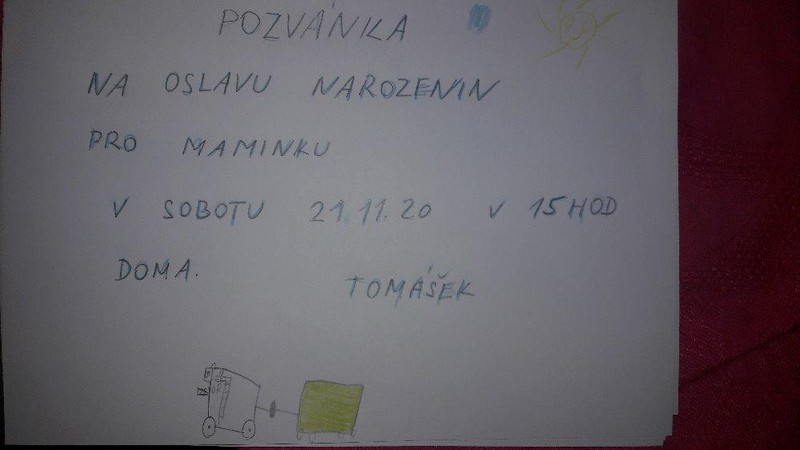 POZVÁNKA
NA OSLAVU NAROZENIN
PRO MAMINKU
V SOBOTU 21.11.20 V 15HOD
DOMA.
TOMÁŠEK